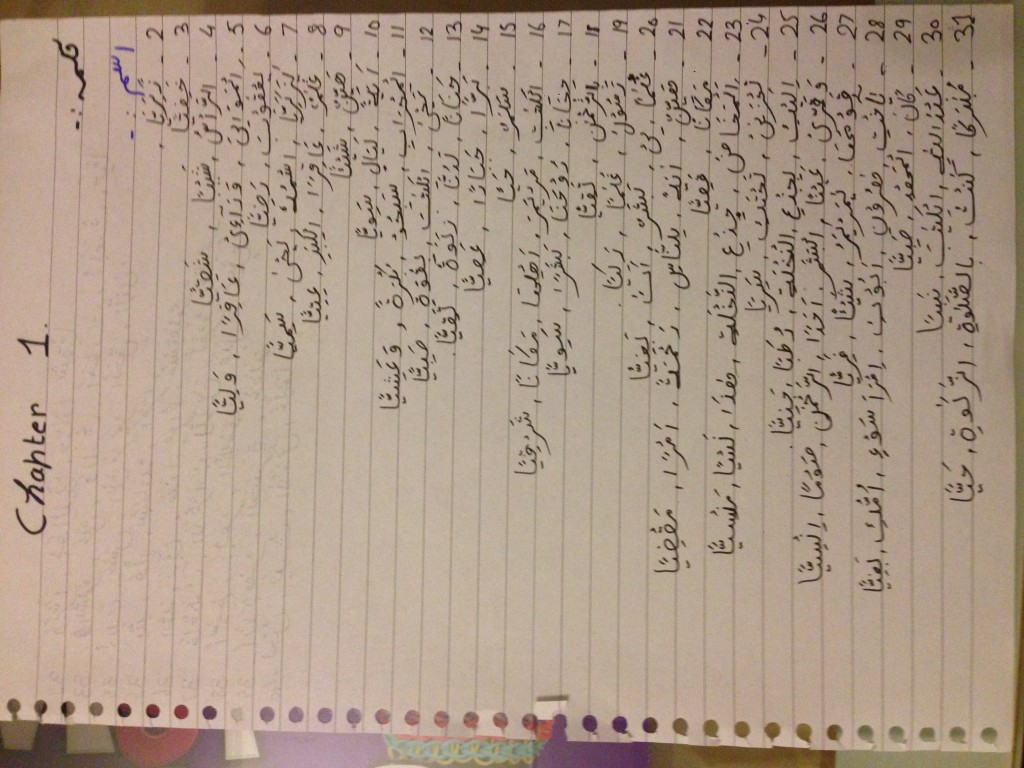 Chapter 1
كلمه :-
اسم :-
2 - زَكَرِيَّا
3 - خَفِيًّا
4 - الرَّأسُ، شَيْبًا، شَقِيًّا
5 - الْمَوَالِىَ، وَرَاءِىْ، عَاقِرًا، وَلِيًّا
6 - يَعْقُوْبَ، رَضِيًّا
7 - لِزَكَرِيَّا، اسْمُهُ، يَحْىٰ، سَمِيًّا
8 - غُلٰمٌ، عَاقِرًا، الْكِبَرِ، عِتِيًّا
9 - هَيِّنٌ، شَيْئًا
10 - اٰيَةً، لَيَالٍ، سَوِيًّا
11 - الْمِحْرَابِ، سَبِّحُوْا، بُكْرَةً، وَعَشِيًّا
12 - يَحْىٰ، الْكِتٰبَ، بِقُوَّةٍ، صَبِيًّا
13 - حَنَانًا، لَدُنَّا، زَكٰوةً، تَقِيًّا
14 - بَرًّا، جَبَّارًا، عَصِيًّا
15 - سَلٰمٌ، حَيًّا
16 - الْكِتٰبِ، مَرْيَمَ، اَهْلِهَا، مَكَانًا، شَرْقِيًّا
17 - حِجَابًا، رُوْحَنَا، بَشَرًا، سَوِيًّا
18 - الرَّحْمٰن، تَقِيًّا
19 - رَسُوْلُ، غُلٰمًا، زَكِيًّا
20 - غُلٰمٌ، لِىْ، بَشَرٌ، بَغِيًّا
21 - هَيِّنٌ، اٰيَةً، لِلنَّاسِ، رَحْمَةً، اَمْرًا، مَقْضِيًّا
22 - مَكَانًا، قَصِيًّا
23 - الْمَخَاضُ، جِذْعِ، النَّخْلَةِ، هٰذَا، نَسْيًا، مَنْسِيًّا
24 - تَحْزَنِىْ، تَحْتَكِ، سَرِيًّا
25 - اِلَيْكِ، بِجِذْعِ، النَّخْلَةِ، رُطَبًا، جَنِيًّا
26 - وَقَرِّىْ، عَيْنًا، الْبَشَرِ، اَحَدًا، الرَّحْمٰنِ، صَوْمًا، اِنْسِيًّا
27 - قَوْمَهَا، يٰمَرْيَمُ، شَيْئًا، فَرِيًّا
28 - يٰاُخْتَ، هٰرُوْنَ، اَبُوْكِ، امْرَاَ، سَوْءٍ، اُمُّكِ، بَغِيًّا
29 - كَانَ، الْمَهْدِ، صَبِيًّا
30 - عَبْدُاللهِ، الْكِتٰبَ، نَبِيًّا
31 - مُبٰرَكًا، كُنْتُ، بِالصَّلٰوةِ، الزَّكٰوةِ، حَيًّا